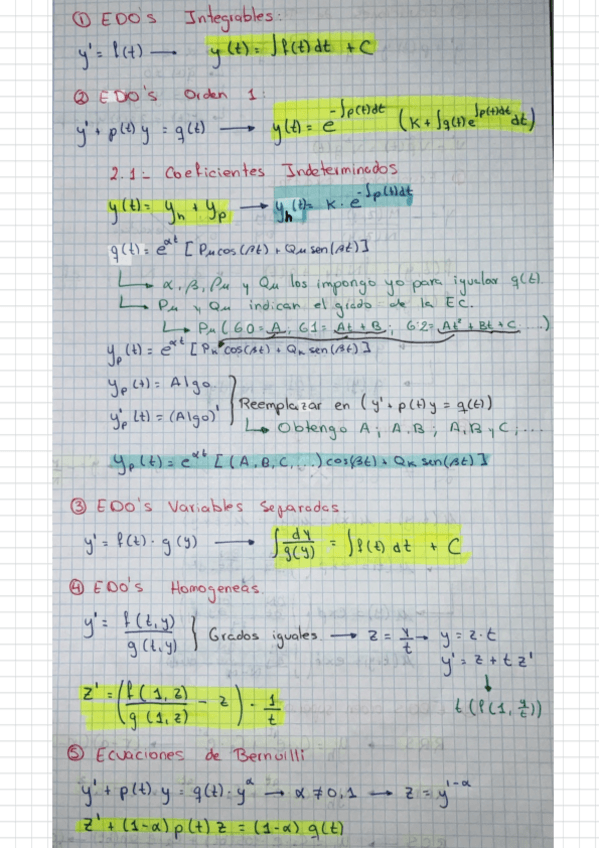 ① EDO's Integrables:
y' = f(t) → y(t) = ∫f(t)dt + C
② EDO's Orden 1:
y' + p(t) y = q(t) → y(t) = e^{-∫p(t)dt} (K + ∫q(t)e^{∫p(t)dt} dt)
2.1- Coeficientes Indeterminados
y(t) = y_h + y_p → y_h(t) = K · e^{-∫p(t)dt}
q(t) = e^{αt} [Pm cos(βt) + Qm sen(βt)]
↳ α, β, Pm y Qm los impongo yo para igualar q(t).
↳ Pm y Qm indican el grado de la EC.
↳ Pm (G0 = A; G1 = At + B; G2 = At² + Bt + C ...)
y_p(t) = e^{αt} [Pk cos(βt) + Qk sen(βt)]
y_p(t) = Algo
y'_p(t) = (Algo)' } Reemplazar en (y' + p(t)y = q(t))
↳ Obtengo A; A,B; A,B y C; ...
y_p(t) = e^{αt} [(A,B,C,...) cos(βt) + Qk sen(βt)]
③ EDO's Variables Separadas
y' = f(t) · g(y) → ∫ dy/g(y) = ∫f(t) dt + C
④ EDO's Homogeneas.
y' = f(t,y)/g(t,y) } Grados iguales → z = y/t → y = z·t
y' = z + t z'
↓
t (f(1, y/t))
z' = (f(1,z)/g(1,z) - z) · 1/t
⑤ Ecuaciones de Bernuilli
y' + p(t) y = q(t) · y^α → α ≠ 0,1 → z = y^{1-α}
z' + (1-α) p(t) z = (1-α) q(t)